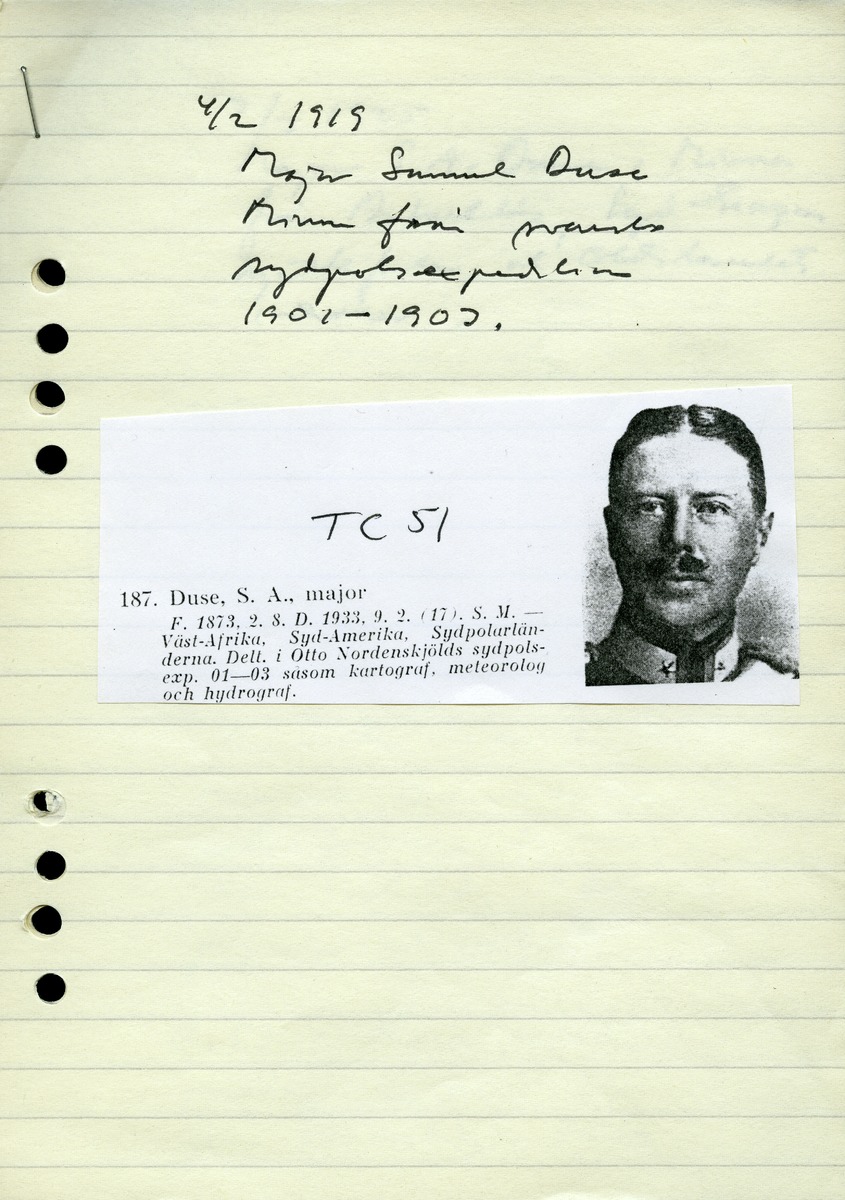 4/2 1919
Major Samuel Duse
Minnen från svenska
sydpolsexpeditionen
1901-1903.
TC 51
187. Duse, S. A., major
F. 1873, 2. 8. D. 1933, 9. 2. (17). S. M. —
Väst-Afrika, Syd-Amerika, Sydpolarlän-
derna. Delt. i Otto Nordenskjölds sydpols-
exp. 01—03 såsom kartograf, meteorolog
och hydrograf.